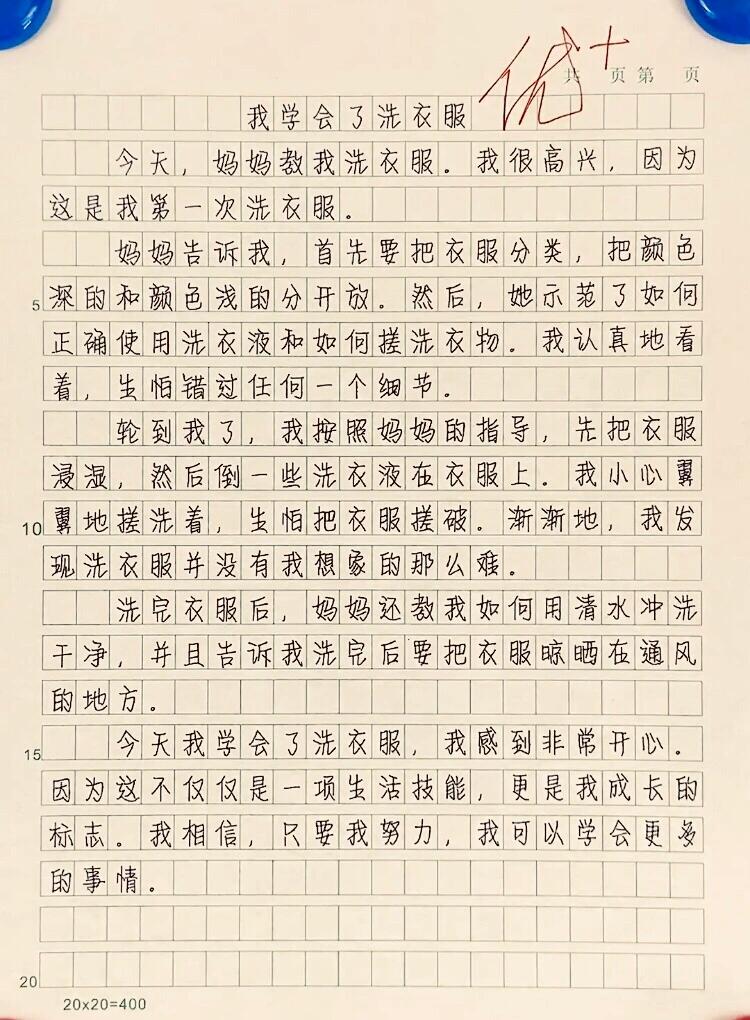 优+
共 页 第 页
我学会了洗衣服
今天，妈妈教我洗衣服。我很高兴，因为
这是我第一次洗衣服。
妈妈告诉我，首先要把衣服分类，把颜色
5 深的和颜色浅的分开放。然后，她示范了如何
正确使用洗衣液和如何搓洗衣物。我认真地看
着，生怕错过任何一个细节。
轮到我了，我按照妈妈的指导，先把衣服
浸湿，然后倒一些洗衣液在衣服上。我小心翼
10 翼地搓洗着，生怕把衣服搓破。渐渐地，我发
现洗衣服并没有我想象的那么难。
洗完衣服后，妈妈还教我如何用清水冲洗
干净，并且告诉我洗完后要把衣服晾晒在通风
的地方。
15 今天我学会了洗衣服，我感到非常开心。
因为这不仅仅是一项生活技能，更是我成长的
标志。我相信，只要我努力，我可以学会更多
的事情。
20
20x20=400